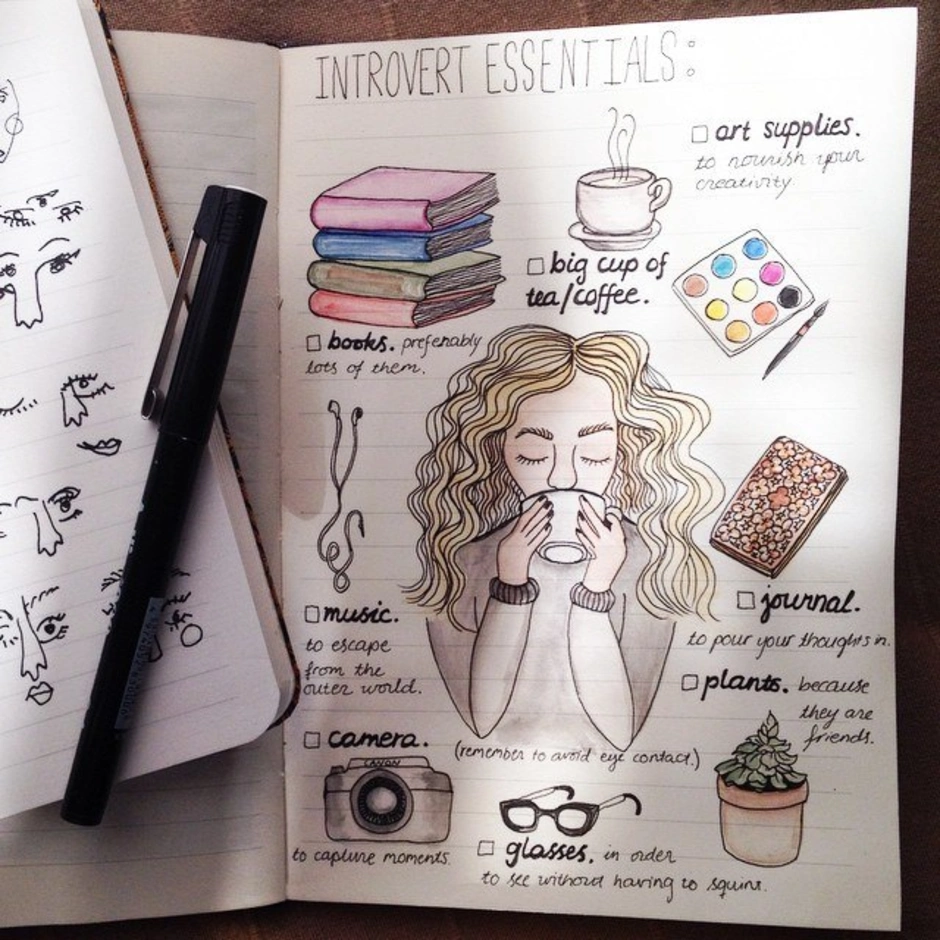 INTROVERT ESSENTIALS:
□ art supplies.
to nourish your
creativity.
□ big cup of
tea/coffee.
□ books. preferably
lots of them.
□ music.
to escape
from the
outer world.
□ journal.
to pour your thoughts in.
□ plants. because
they are
friends.
□ camera.
CANON
to capture moments.
(remember to avoid eye contact.)
□ glasses. in order
to see without having to squint.